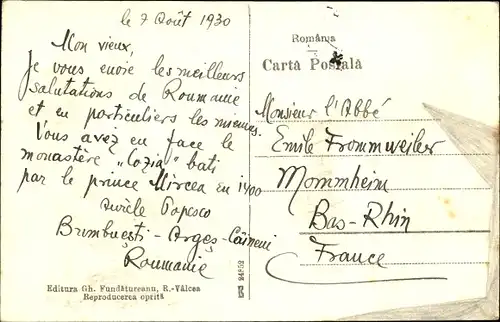 le 7 Août 1930
Mon vieux,
Je vous envoie les meilleurs
salutations de Roumanie
et en particuliers les miennes.
Vous avez en face le
monastère „Cozia" bati
par le prince Mircea en 1400
Aurèle Popesco
Brumbuești - Argeș - Câineni
Roumanie
Editura Gh. Fundățureanu, R.-Vâlcea
Reproducerea oprită
România
Carta Poștală
Monsieur l'Abbé
Emile Frommweiler
Mommheim
Bas-Rhin
France